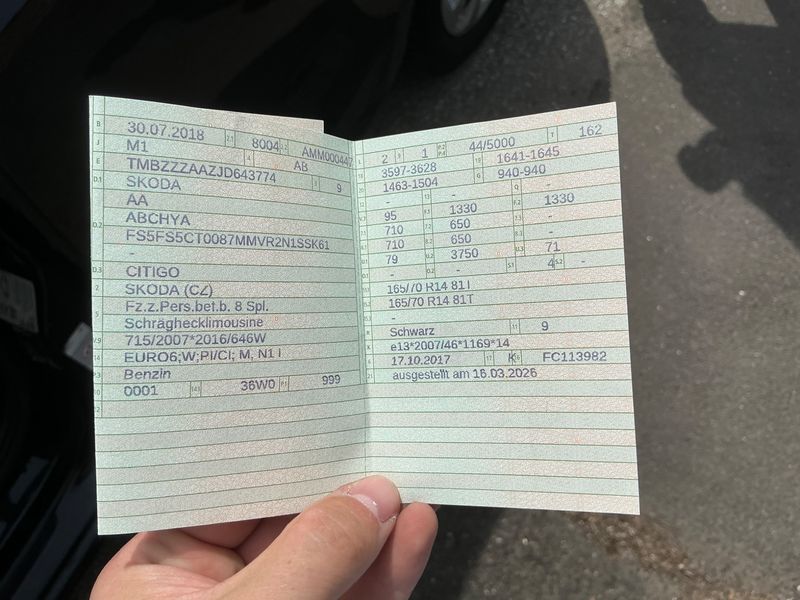 B 30.07.2018 2.1 8004 2.2 AMM000447
J M1 4 AB
E TMBZZZAAZJD643774 3 9
D.1 SKODA
AA
D.2 ABCHYA
FS5FS5CT0087MMVR2N1SSK61
-
D.3 CITIGO
2 SKODA (CZ)
5 Fz.z.Pers.bet.b. 8 Spl.
Schräghecklimousine
V.9 715/2007*2016/646W
14 EURO6;W;PI/CI; M, N1 I
P.3 Benzin
10 0001 14.1 36W0 P.1 999
L 2 9 1 P.2 P.4 44/5000 T 162
18 3597-3628 19 1641-1645
20 1463-1504 G 940-940
- 13 - Q -
V.7 95 F.1 1330 F.2 1330
710 7.2 650 7.3 -
710 8.2 650 8.3 -
U.1 79 U.2 3750 U.3 71
- O.2 - S.1 4 S.2 -
165/70 R14 81T
165/70 R14 81T
-
R Schwarz 11 9
K e13*2007/46*1169*14
6 17.10.2017 17 K FC113982
21 ausgestellt am 16.03.2026